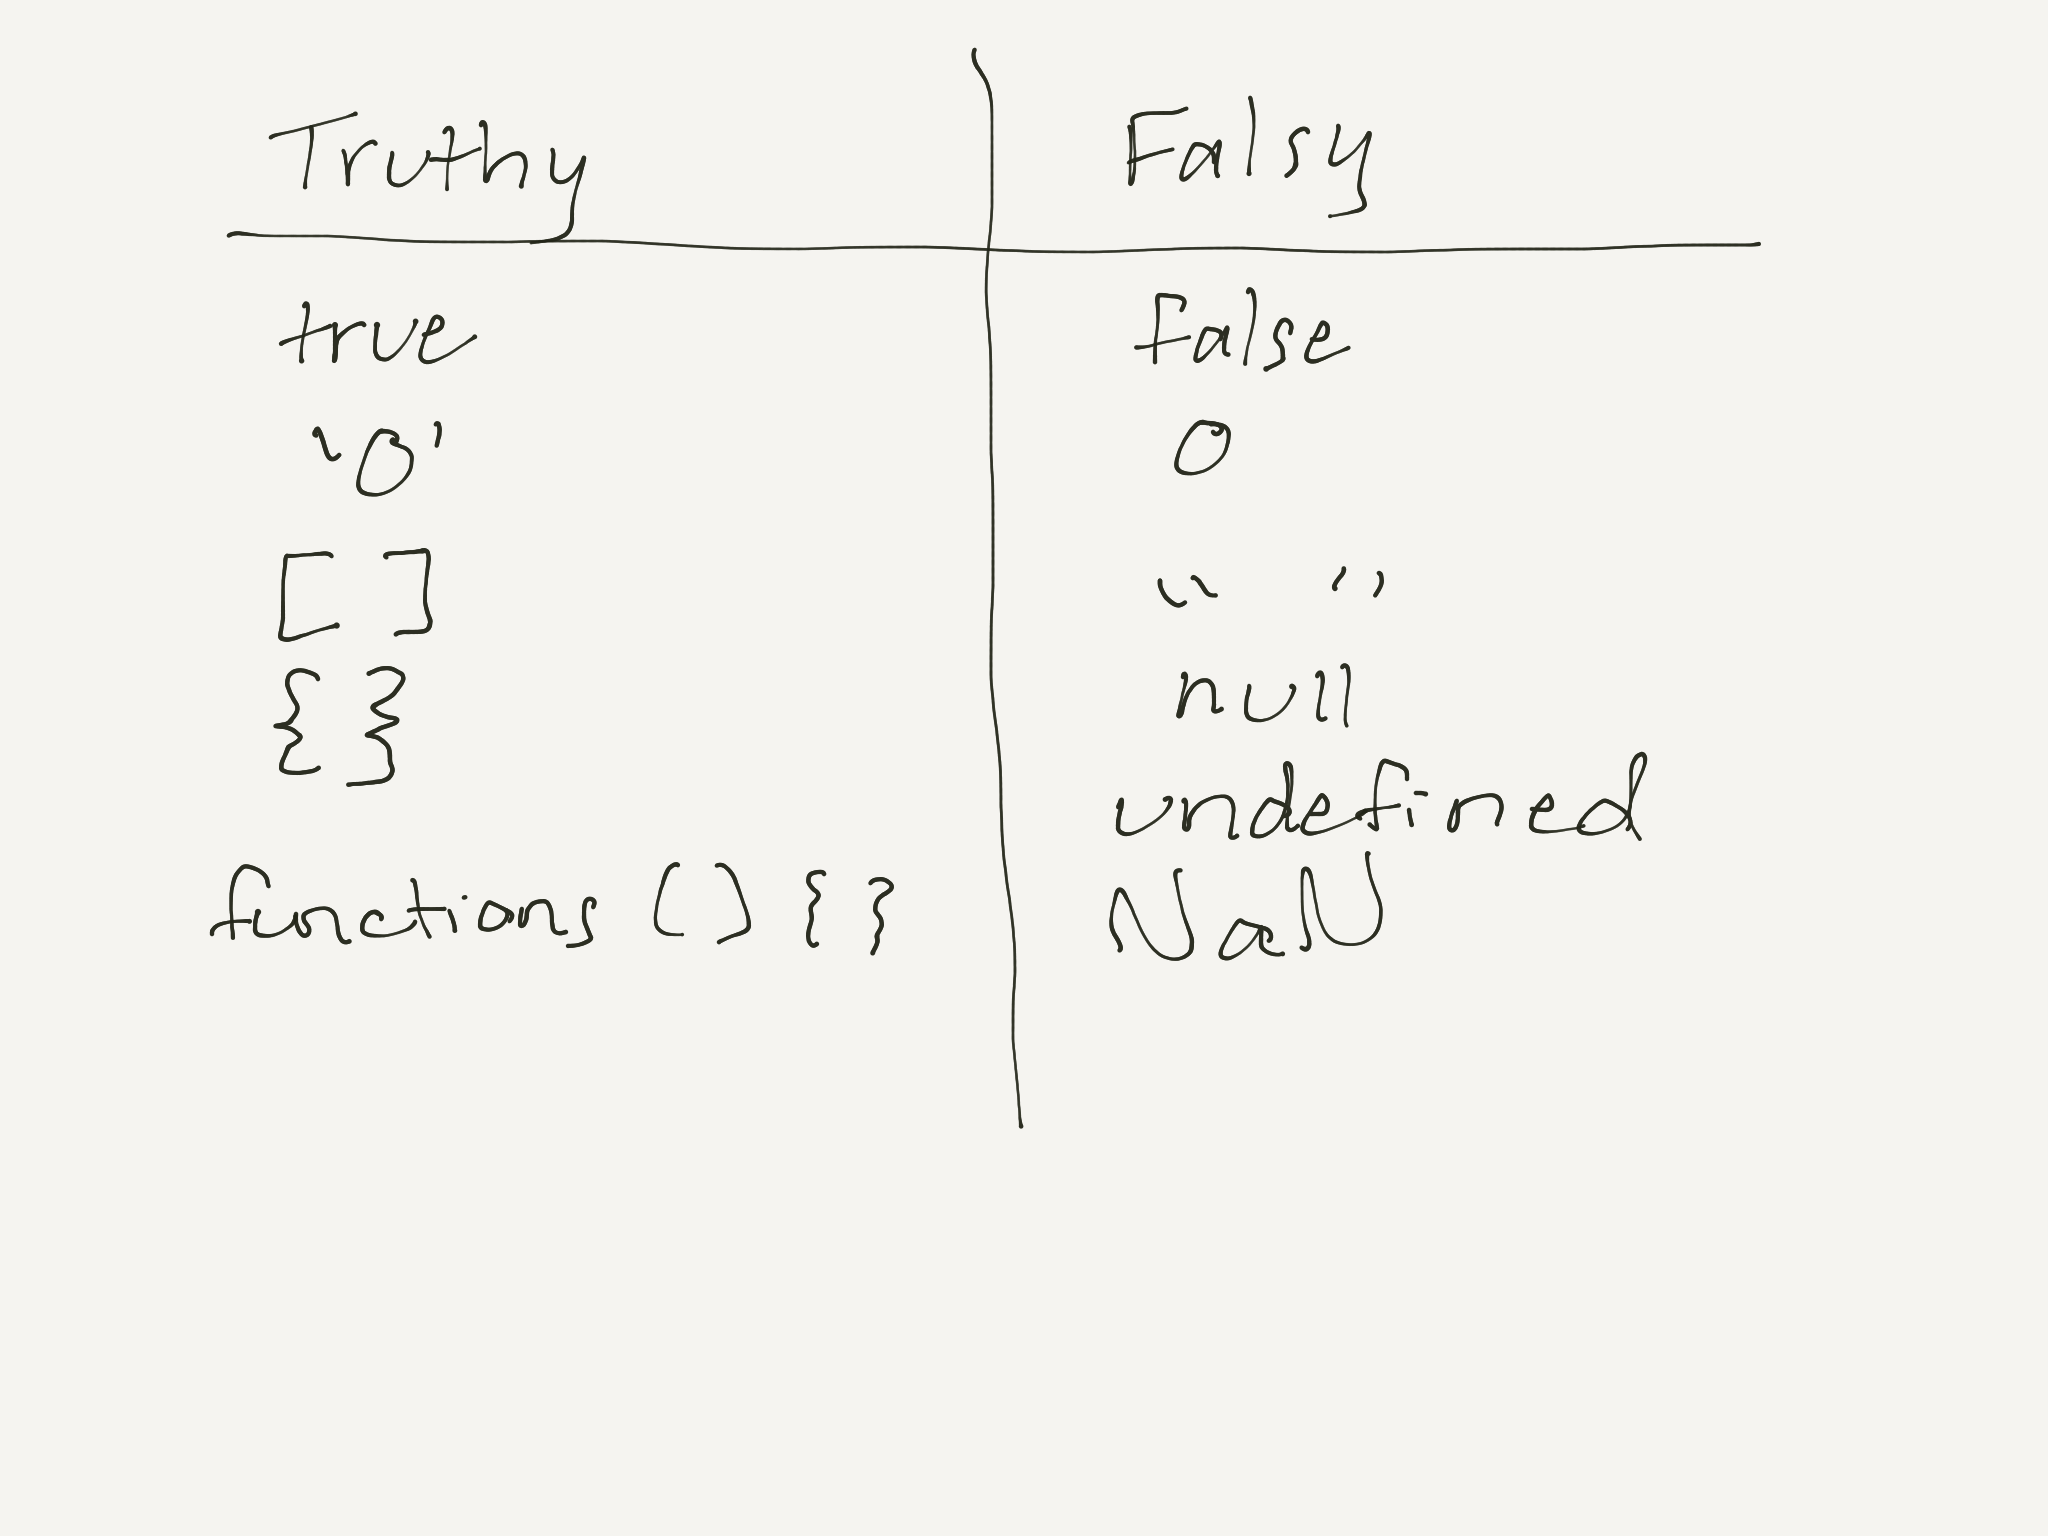 Truthy Falsy
true false
'0' 0
[ ] “ ”
{ } null
undefined
functions () { } NaN